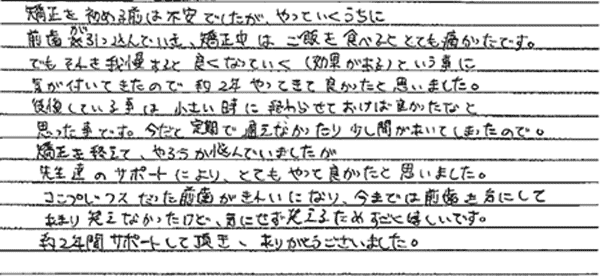 矯正を初める前は不安でしたが、やっていくうちに
前歯が引っ込んでいき、矯正中はご飯を食べるととても痛かったです。
でもそれを我慢すると良くなっていく(効果がある)という事に
気が付いてきたので約2年やってきて良かったと思いました。
後悔している事は小さい時に終わらせておけば良かったなと
思った事です。今だと定期で通えなかったり少し間があいてしまったので。
矯正を終えて、やろうか悩んでいましたが
先生達のサポートにより、とてもやって良かったと思いました。
コンプレックスだった前歯がきれいになり、今までは前歯を気にして
あまり笑えなかったけど、気にせず笑えるためすごく嬉しいです。
約2年間サポートして頂き、ありがとうございました。